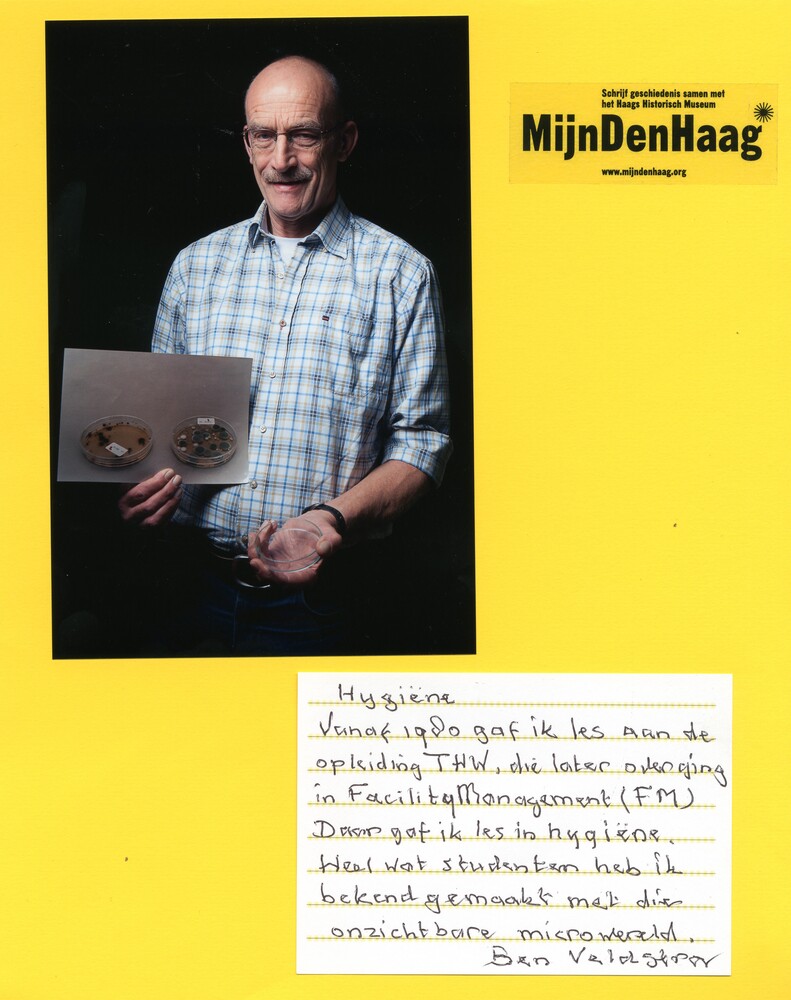 Schrijf geschiedenis samen met
het Haags Historisch Museum
MijnDenHaag
www.mijndenhaag.org
Hygiëne
Vanaf 1980 gaf ik les aan de
opleiding THW, die later overging
in FacilityManagement (FM)
Daar gaf ik les in hygiëne.
Heel wat studenten heb ik
bekend gemaakt met die
onzichtbare microwereld.
Ben